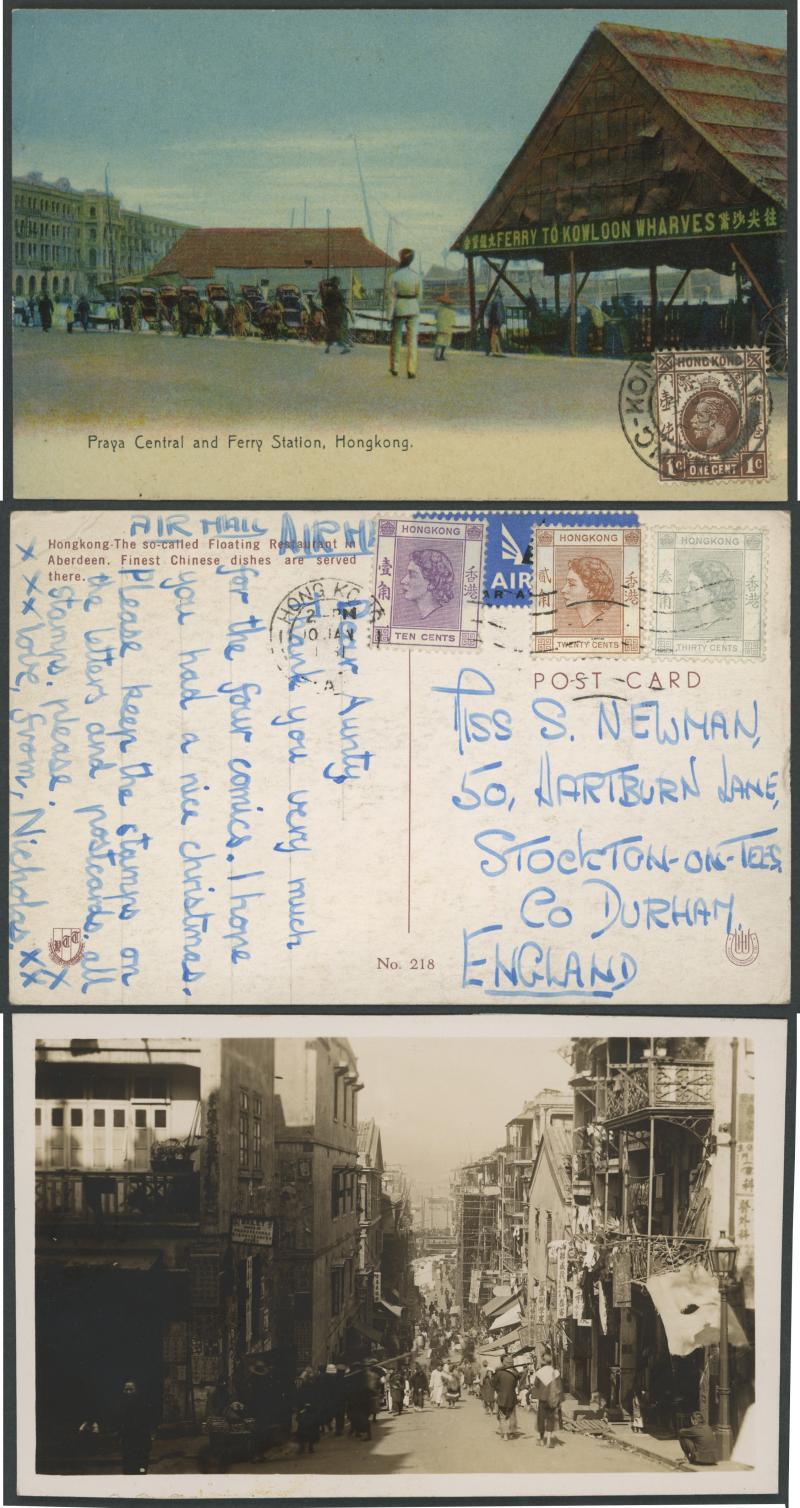 往尖沙嘴 FERRY TO KOWLOON WHARVES
HONGKONG
壹
1C ONE CENT 1C
Praya Central and Ferry Station, Hongkong.
AIR MAIL
Hongkong-The so-called Floating Restaurant in
Aberdeen. Finest Chinese dishes are served
there.
HONGKONG
壹角
香港
TEN CENTS
AIR
HONGKONG
貳角
香港
TWENTY CENTS
HONGKONG
叁角
香港
THIRTY CENTS
HONG KO
2 - PM
10 JAN
Dear Aunty,
Thank you very much
for the four comics. I hope
you had a nice christmas.
Please keep the stamps on
the letters and postcards, all
stamps, please.
xxx love, from, Nicholas. xxx
POST CARD
MISS S. NEWMAN,
50, HARTBURN LANE,
STOCKTON-ON-TEES,
CO DURHAM,
ENGLAND
No. 218